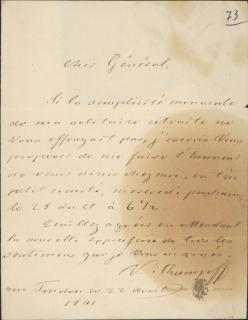 73
Cher Général,
Si la simplicité monacale
de ma solitaire retraite ne
vous effrayait pas, j'oserais vous
proposer de me faire l'honneur
de venir dîner chez moi, en très
petit comité, mercredi prochain
le 28 du ct à 6 1/2.
Veuillez agréer en attendant
la nouvelle expression de tous les
sentiments que je vous ai voués.
22 avril
1841